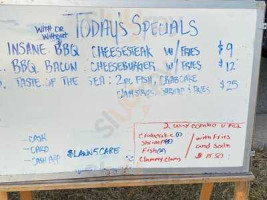 TODAY'S SPECIALS
WITH OR
Without
INSANE BBQ CHEESESTEAK W/ FRIES $9
BBQ BACON CHEESEBURGER W/ FRIES $12
TASTE OF THE SEA: 2pc FISH, CRABCAKE $25
CLAM STRIPS, SHRIMP & FRIES
-CASH
-CARD
-CASH APP $LAWNSCARE
2 WAY COMBO
Crabcake (1)
Shrimp
Fish
Clams
w/ with fries
and soda